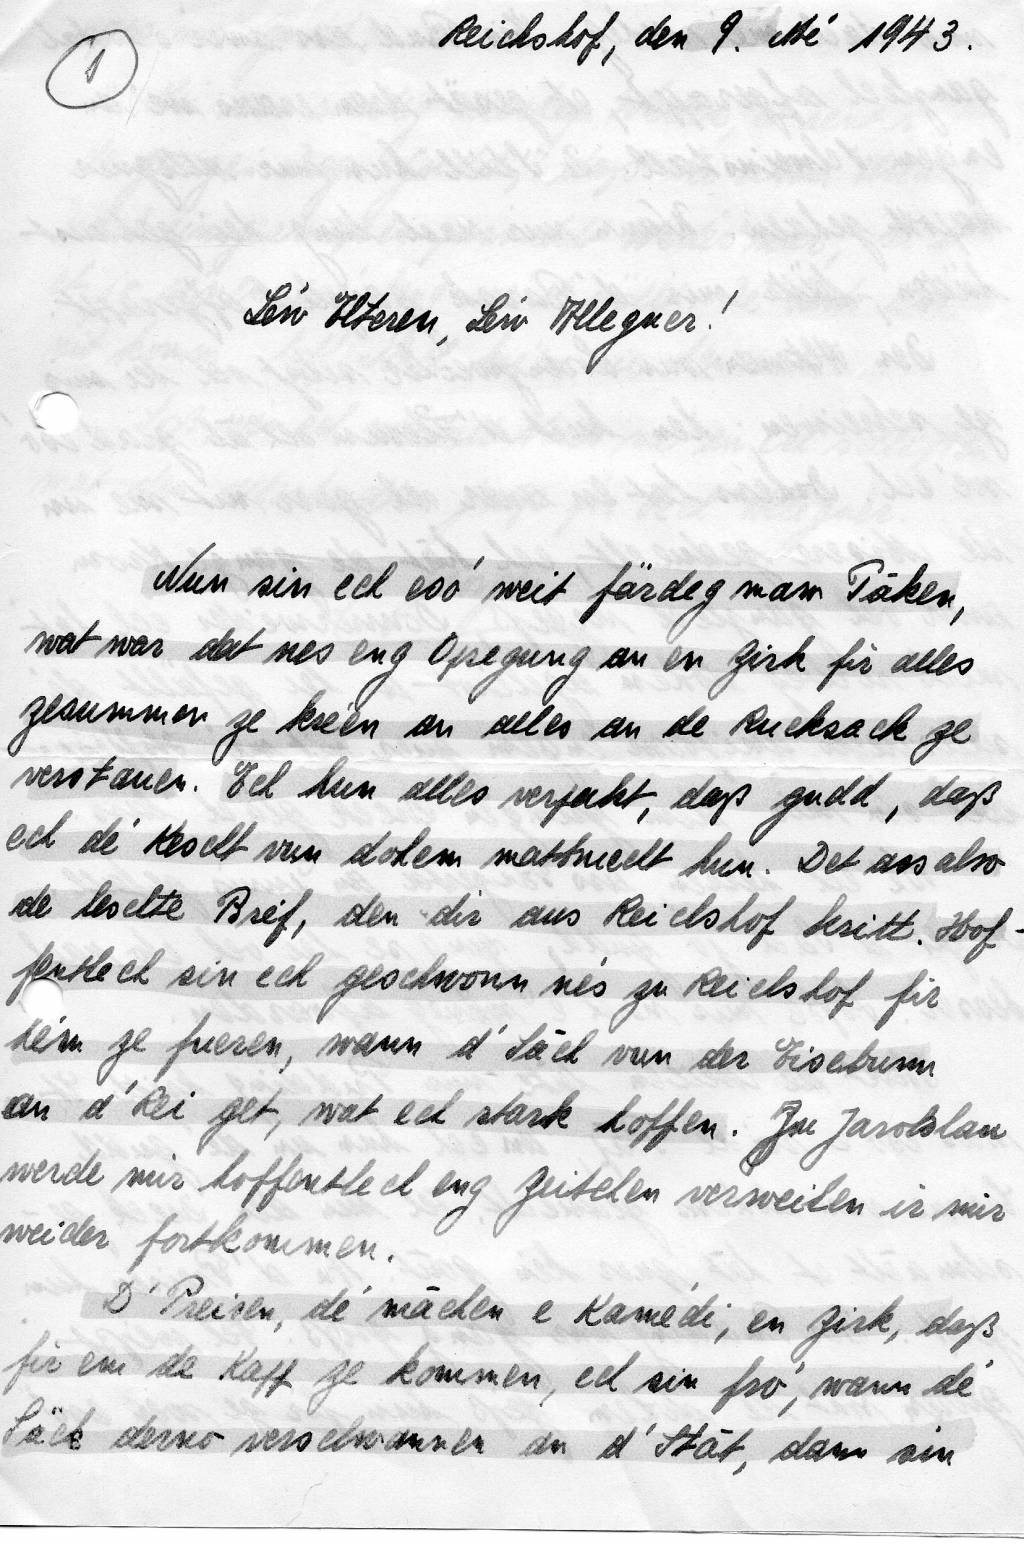 Reichshof, den 9. Mé 1943.
1
Léw Elteren, Léw Alleguer!
Nun sin ech esó weit färdeg mam Päken,
wat war dat nes eng Opregung an en Zirk fir alles
zesummen ze kréen an alles an de Rucksack ze
verstauen. Ech hun alles verpakt, daß gudd, daß
ech dé Kescht vun dohem mattbruecht hun. Det ass also
de leschte Bréf, den dir aus Reichshof kritt. Hof-
fentlech sin ech geschwonn nés zu Reichshof fir
hém ze fueren, wann d' Säch vun der Eisebunn
an d' Rei get, wat ech stark hoffen. Zu Jaroslau
werde mir hoffentlech eng Zeitchen verweilen ir mir
weider fortkommen.
D' Preisen, dé mächen e Kamédi, en Zirk, daß
fir em de Kapp ze kommen, ech sin fró, wann dé
Säck derno verschwannen an d' Stät, dann sin